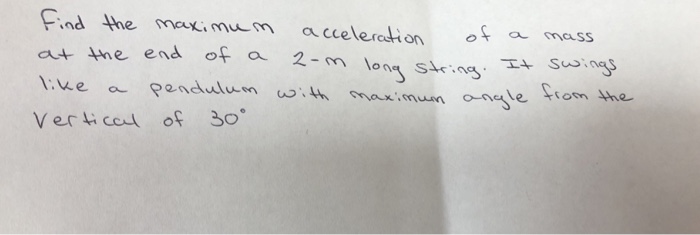 Find the maximum acceleration of a mass
at the end of a 2-m long string. It swings
like a pendulum with maximum angle from the
Vertical of 30°